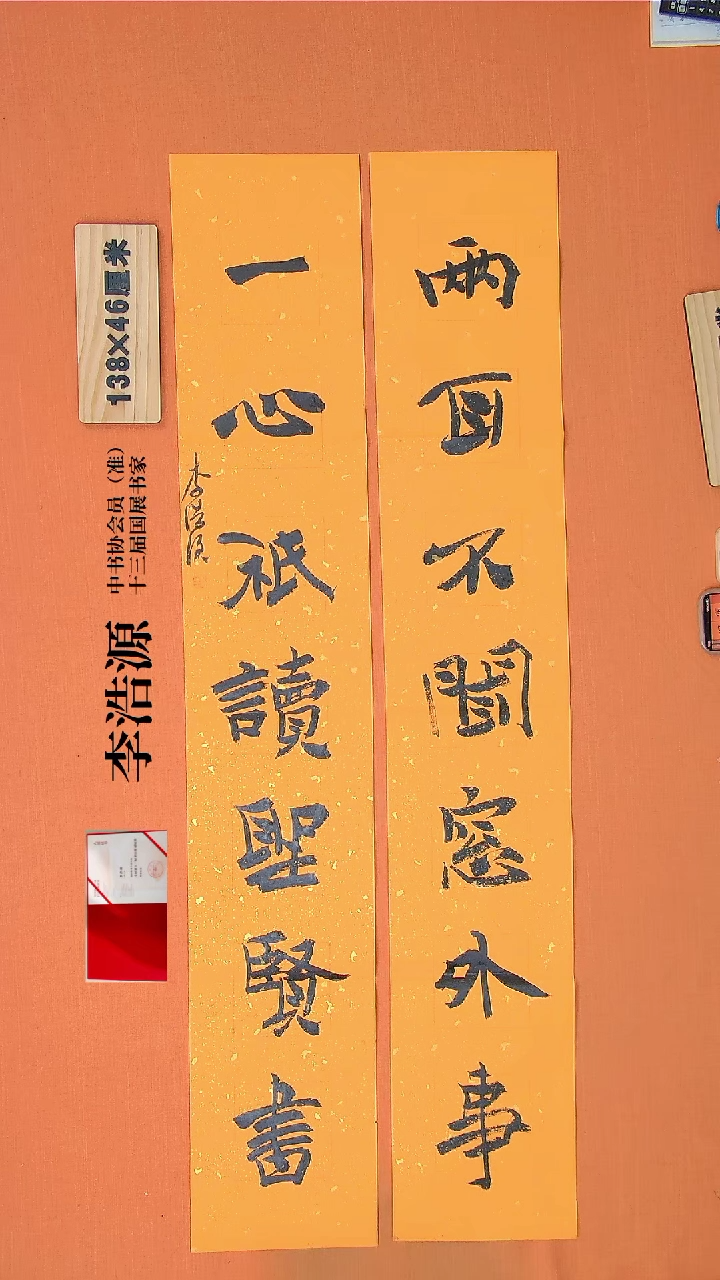 两耳不聞窓外事
一心祇讀聖賢書
李浩源
138×46厘米
中书协会员（准）
十三届国展书家
李浩源